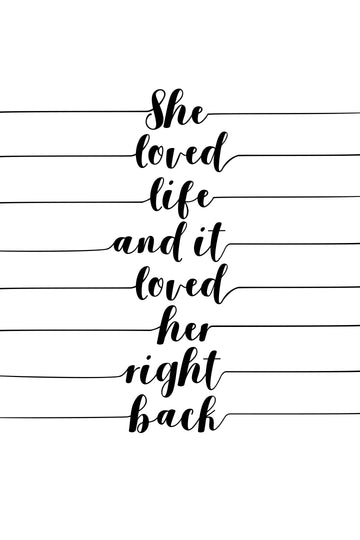 She
loved
life
and it
loved
her
right
back